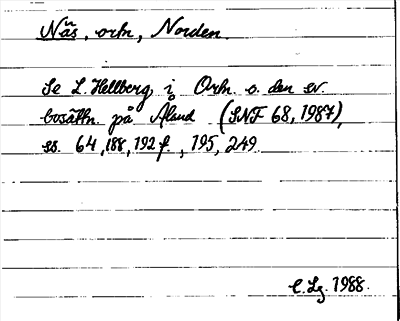 Näs, ortn., Norden.
Se L. Hellberg, i Ortn. o. den sv.
bosättn. på Åland (SNF 68, 1987),
ss. 64, 188, 192 f., 195, 249.
C. Lg. 1988.